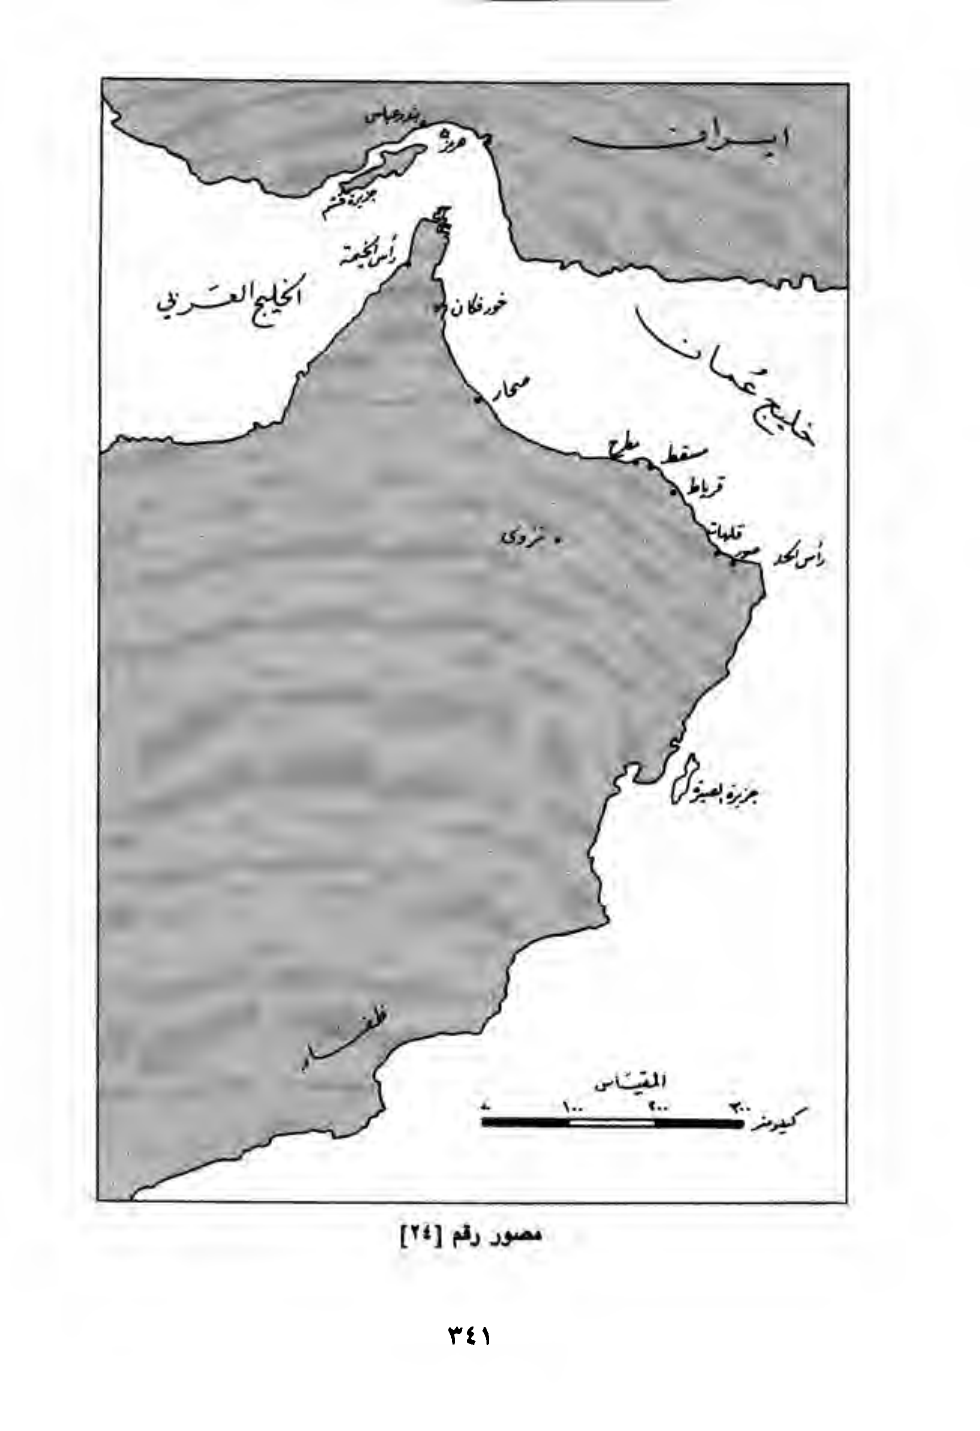 ايران
بندر عباس
هرمز
جزيرة قشم
رأس الخيمة
الخليج العَربي
خور فكان
خليج عُمان
صحار
مطرح
مسقط
قرياط
قلهات
صور
رأس الحد
نزوى
جزيرة
ظفار
المقيَاس
٠ ١٠٠ ٢٠٠ ٣٠٠ كيلومتر
مصور رقم [٢٤]
٣٤١